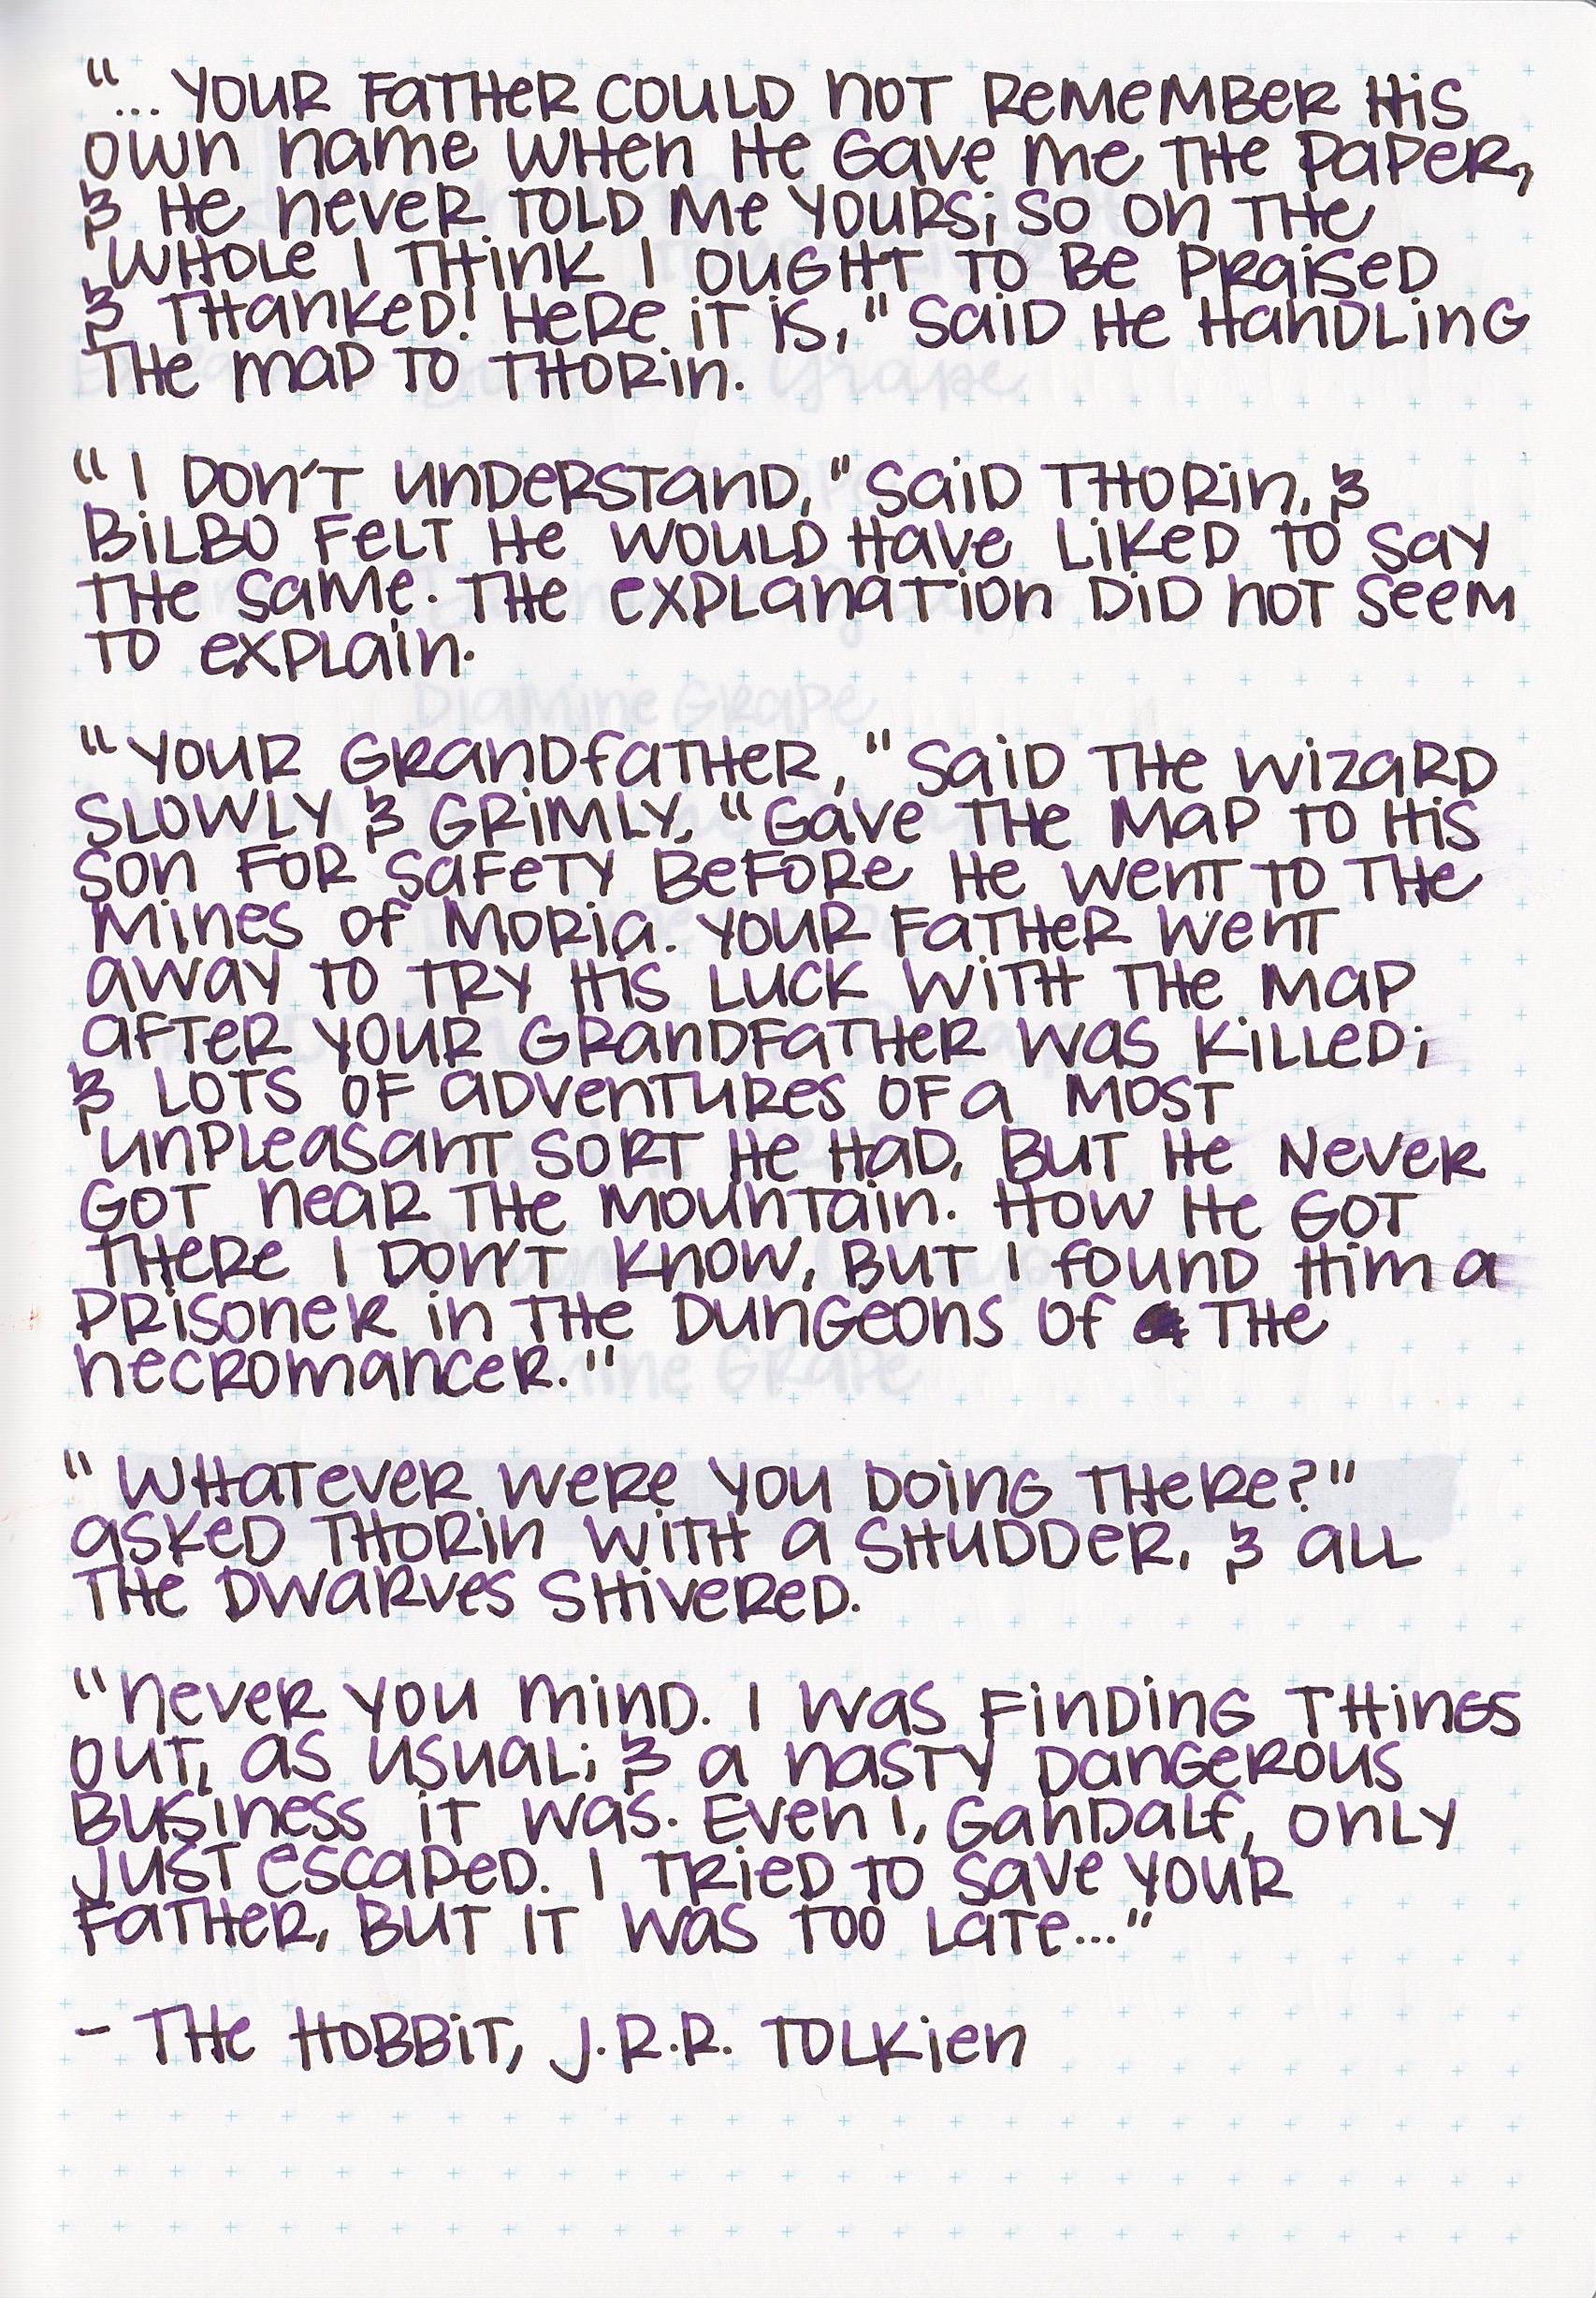 "... Your father could not remember his
own name when he gave me the paper,
& he never told me yours; so on the
whole I think I ought to be praised
& thanked! Here it is," said he handling
the map to Thorin.
"I don't understand," said Thorin, &
Bilbo felt he would have liked to say
the same. The explanation did not seem
to explain.
"Your grandfather," said the wizard
slowly & grimly, "gave the map to his
son for safety before he went to the
mines of Moria. Your father went
away to try his luck with the map
after your grandfather was killed;
& lots of adventures of a most
unpleasant sort he had, but he never
got near the mountain. How he got
there I don't know, but I found him a
prisoner in the dungeons of the
necromancer."
"Whatever were you doing there?"
asked Thorin with a shudder, & all
the dwarves shivered.
"Never you mind. I was finding things
out, as usual; & a nasty dangerous
business it was. Even I, Gandalf, only
just escaped. I tried to save your
father, but it was too late..."
- The Hobbit, J.R.R. Tolkien
Diamine Grape